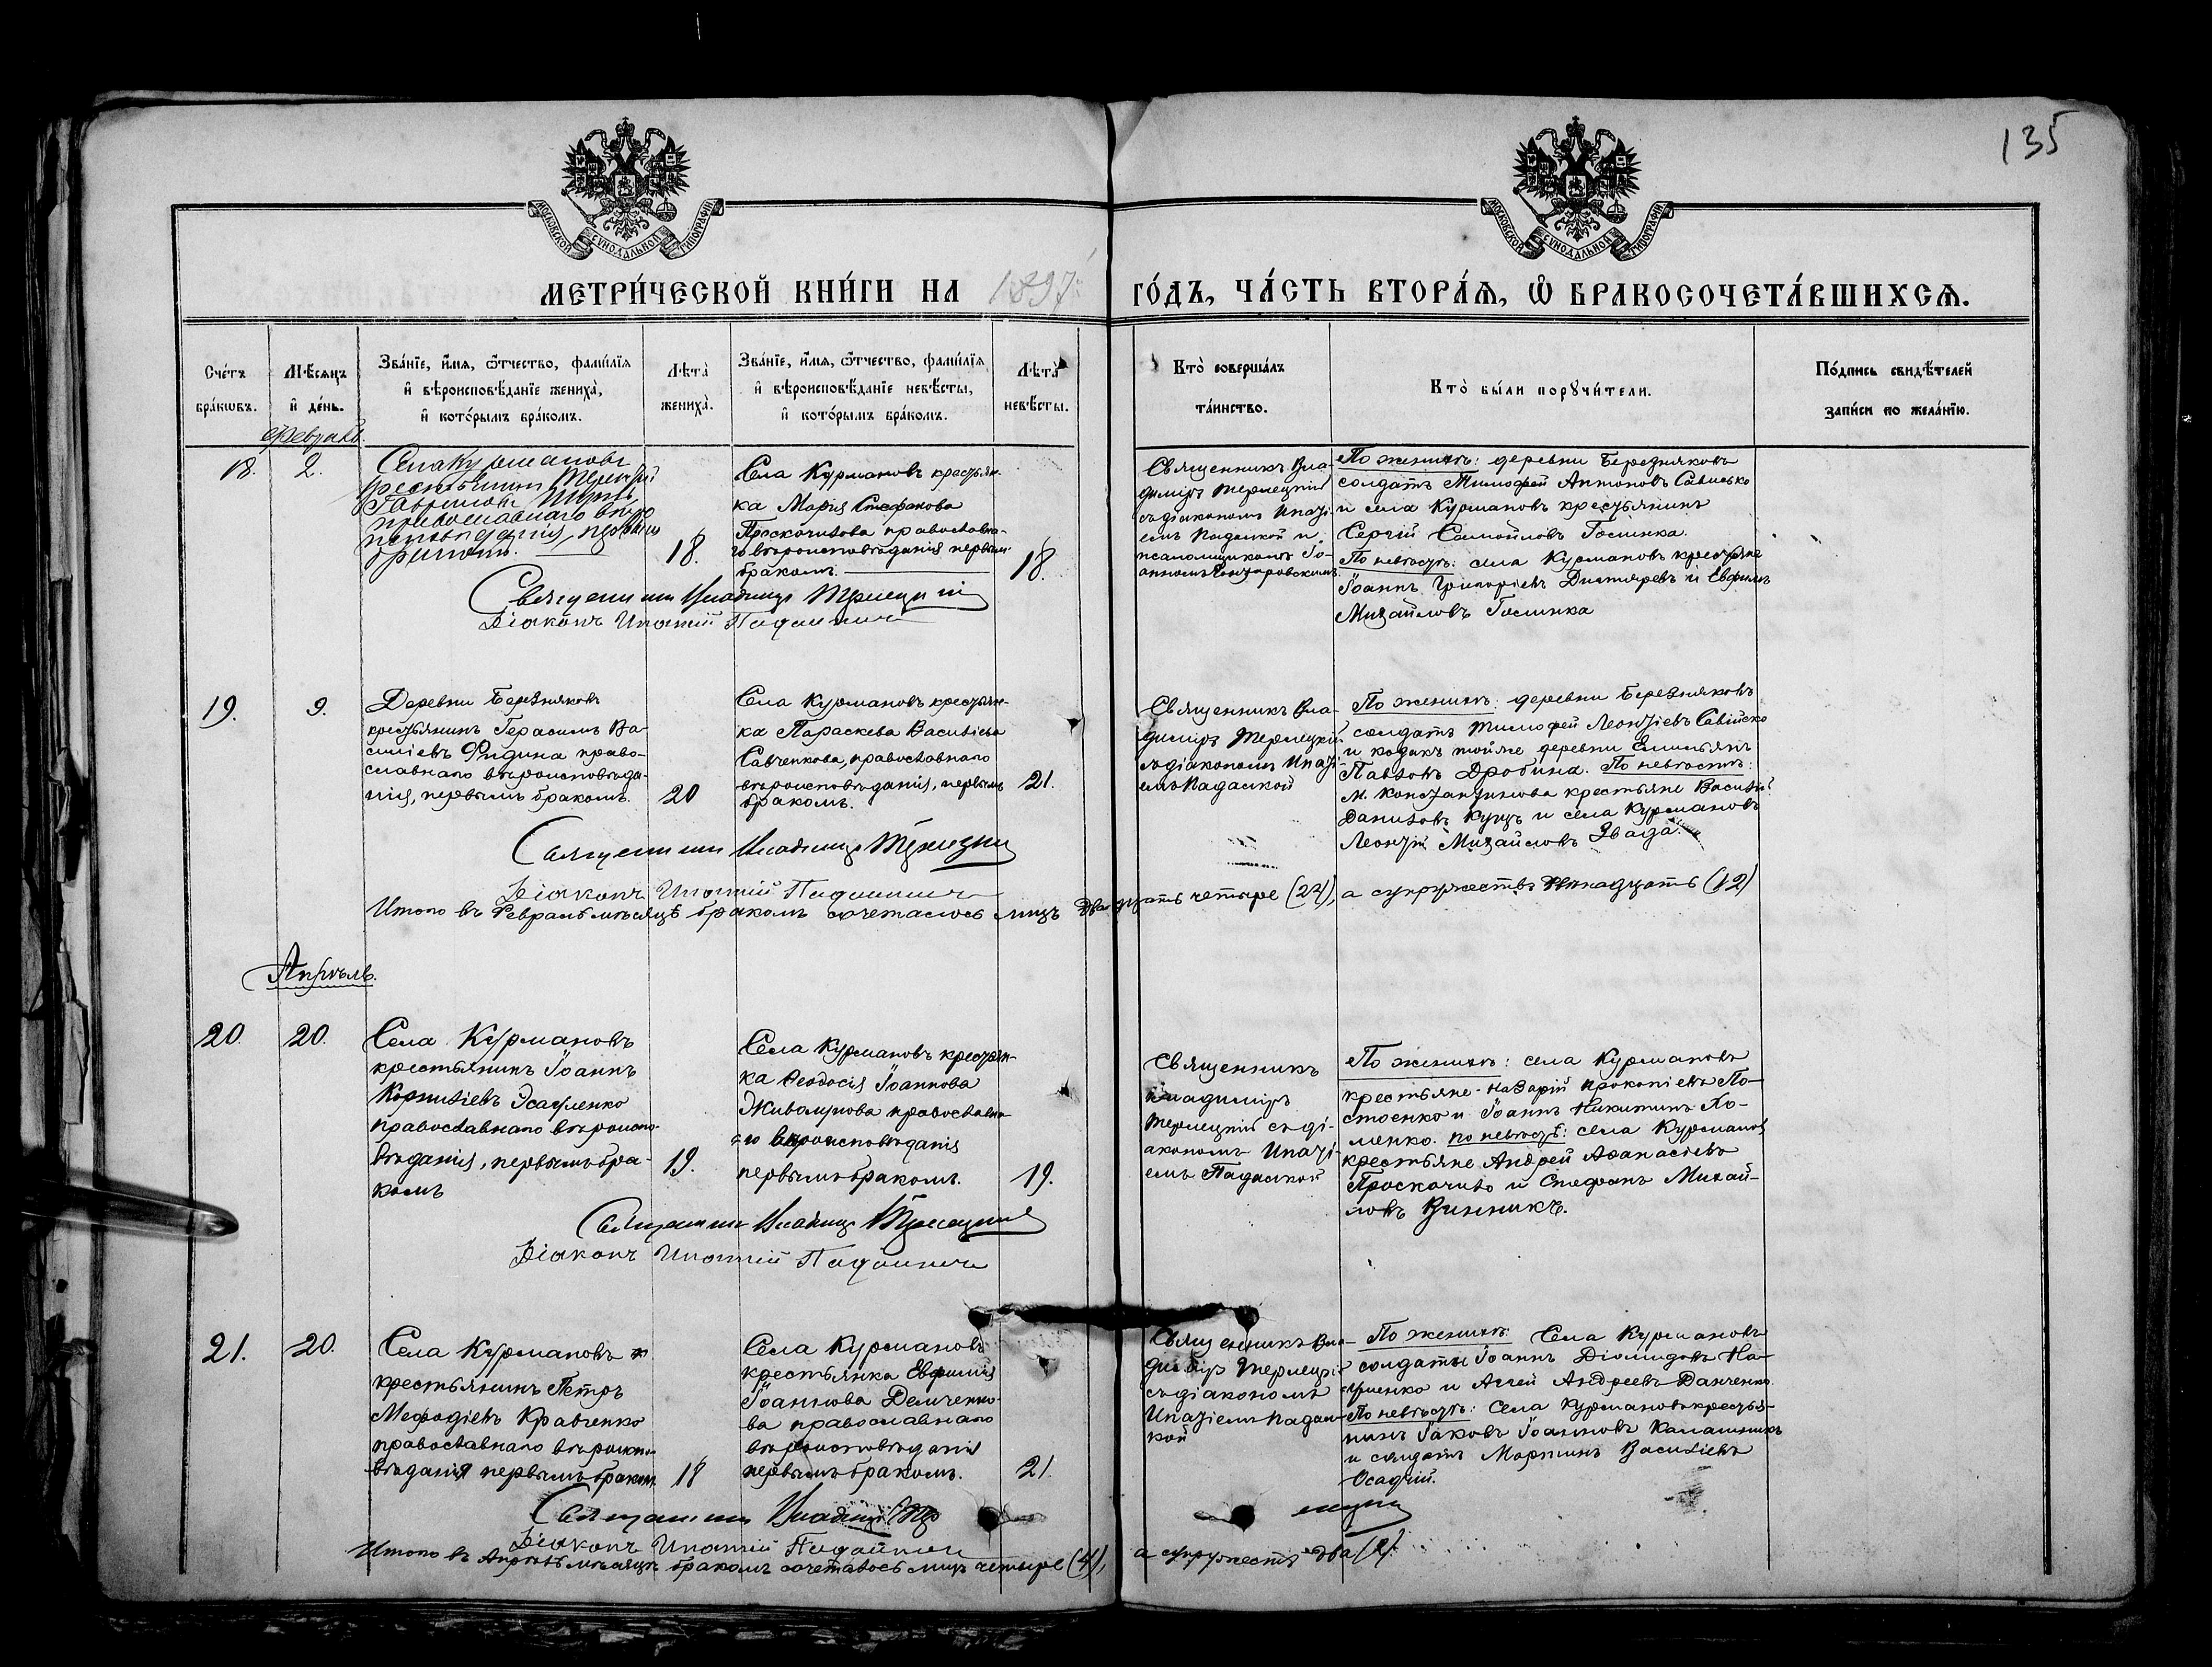 135
МОСКОВСКОЙ СѴНОДАЛЬНОЙ ТИПОГРАФІИ
МОСКОВСКОЙ СѴНОДАЛЬНОЙ ТИПОГРАФІИ
МЕТРИ́ЧЕСКОЙ КНИ́ГИ НА 1897 ГО́ДЪ, ЧА́СТЬ ВТОРА́Ѧ, Ѽ БРАКОСОЧЕТА́ВШИХСѦ.
Сче́тъ
бра́кѡвъ.
Мѣ́сѧцъ
и҆ де́нь.
Зва́нїе, и҆́мѧ, ѻ҆́тчество, фами́лїѧ
и҆ вѣроисповѣ́данїе жениха̀,
и҆ кото́рымъ бра́комъ.
Лѣта̀
жениха̀.
Зва́нїе, и҆́мѧ, ѻ҆́тчество, фами́лїѧ
и҆ вѣроисповѣ́данїе невѣ́сты,
и҆ кото́рымъ бра́комъ.
Лѣта̀
невѣ́сты.
Кто̀ соверша́лъ
та́инство.
Кто̀ бы́ли порꙋчи́тели.
По́дпись свидѣ́телей
за́писи по жела́нїю.
Февраль.
18.
2.
Села Курмановъ
крестьянинъ
православнаго вѣро
исповѣданія, первымъ
бракомъ.
18.
Села Курмановъ крестьян-
ка Марія Стефанова
Проскочилова православна-
го вѣроисповѣданія первым
бракомъ.
18.
Священникъ Вла-
диміръ Терлецкій
съ діакономъ Ипаті-
емъ Падалкой и
псаломщикомъ Іо-
анномъ
По женихѣ: деревни Березняковъ
солдатъ Тимофей Антоновъ Сависько
и села Курмановъ крестьянинъ
Сергій Самойловъ Голинка.
По невѣстѣ: села Курмановъ крестьяне
Іоаннъ Григоріевъ Дигтяревъ и Евфимъ
Михайловъ Голинка
Священникъ Владиміръ Терлецкій
Діаконъ Ипатій Падалка
19.
9.
Деревни Березняковъ
крестьянинъ Герасимъ Ва-
силіевъ Фидина право-
славнаго вѣроисповѣда-
нія, первымъ бракомъ.
20
Села Курмановъ крестьян-
ка Параскева Василіева
Савченкова, православнаго
вѣроисповѣданія, первымъ
бракомъ.
21.
Священникъ Вла-
диміръ Терлецкій
съ діакономъ Ипаті-
емъ Падалкой
По женихѣ: деревни Березняковъ
солдатъ Тимофей Леонтіевъ Савійско
и козакъ тойже деревни Емильянъ
Павловъ Дробина. По невѣстѣ:
м. Константинова крестьяне Василій
Даниловъ Куцъ и села Курмановъ
Леонтій Михайловъ Звада.
Священникъ Владиміръ Терлецкій
Діаконъ Ипатій Падалка
Итого въ Февралѣ мѣсяцѣ бракомъ сочеталось лицъ двадцать четыре (24), а супружествъ двѣнадцать (12)
Апрѣль.
20.
20.
Села Курмановъ
крестьянинъ Іоаннъ
Корниліевъ Эсауленко
православнаго вѣроиспо-
вѣданія, первымъ бра-
комъ
19.
Села Курмановъ крестьян-
ка Ѳеодосія Іоаннова
православна-
го вѣроисповѣданія
первымъ бракомъ.
19.
Священникъ
Владиміръ
Терлецкій съ ді-
акономъ Ипаті-
емъ Падалкой
По женихѣ: села Курмановъ
крестьяне Назарій Прокопіевъ По-
стоенко и Іоаннъ Никитинъ Хо-
менко. по невѣстѣ: села Курмановъ
крестьяне Андрей Аѳанасіевъ
Проскочило и Стефанъ Михай-
ловъ Винникъ.
Священникъ Владиміръ Терлецкій
Діаконъ Ипатій Падалка
21.
20.
Села Курмановъ
крестьянинъ Петръ
Меѳодіевъ Кравченко
православнаго вѣроиспо-
вѣданія первымъ бракомъ
18
Села Курмановъ
крестьянка Евфимія
Іоаннова Демченко-
ва православнаго
вѣроисповѣданія
первымъ бракомъ.
21.
Священникъ Вла-
диміръ Терлецкі
съ діакономъ
Ипатіемъ Падал-
кой
По женихѣ: Села Курмановъ
солдаты Іоаннъ Діомидовъ На-
уменко и Аггей Андреевъ Данченко.
По невѣстѣ: Села Курмановъ крестья-
нинъ Іаковъ Іоанновъ Калашникъ
и солдатъ Мартинъ Василіевъ
Осадчій.
Священникъ Владиміръ Тер
лецкій
Діаконъ Ипатій Падалка
Итого въ Апрѣлѣ мѣсяцѣ бракомъ сочеталось лицъ четыре (4), а супружествъ два (2).